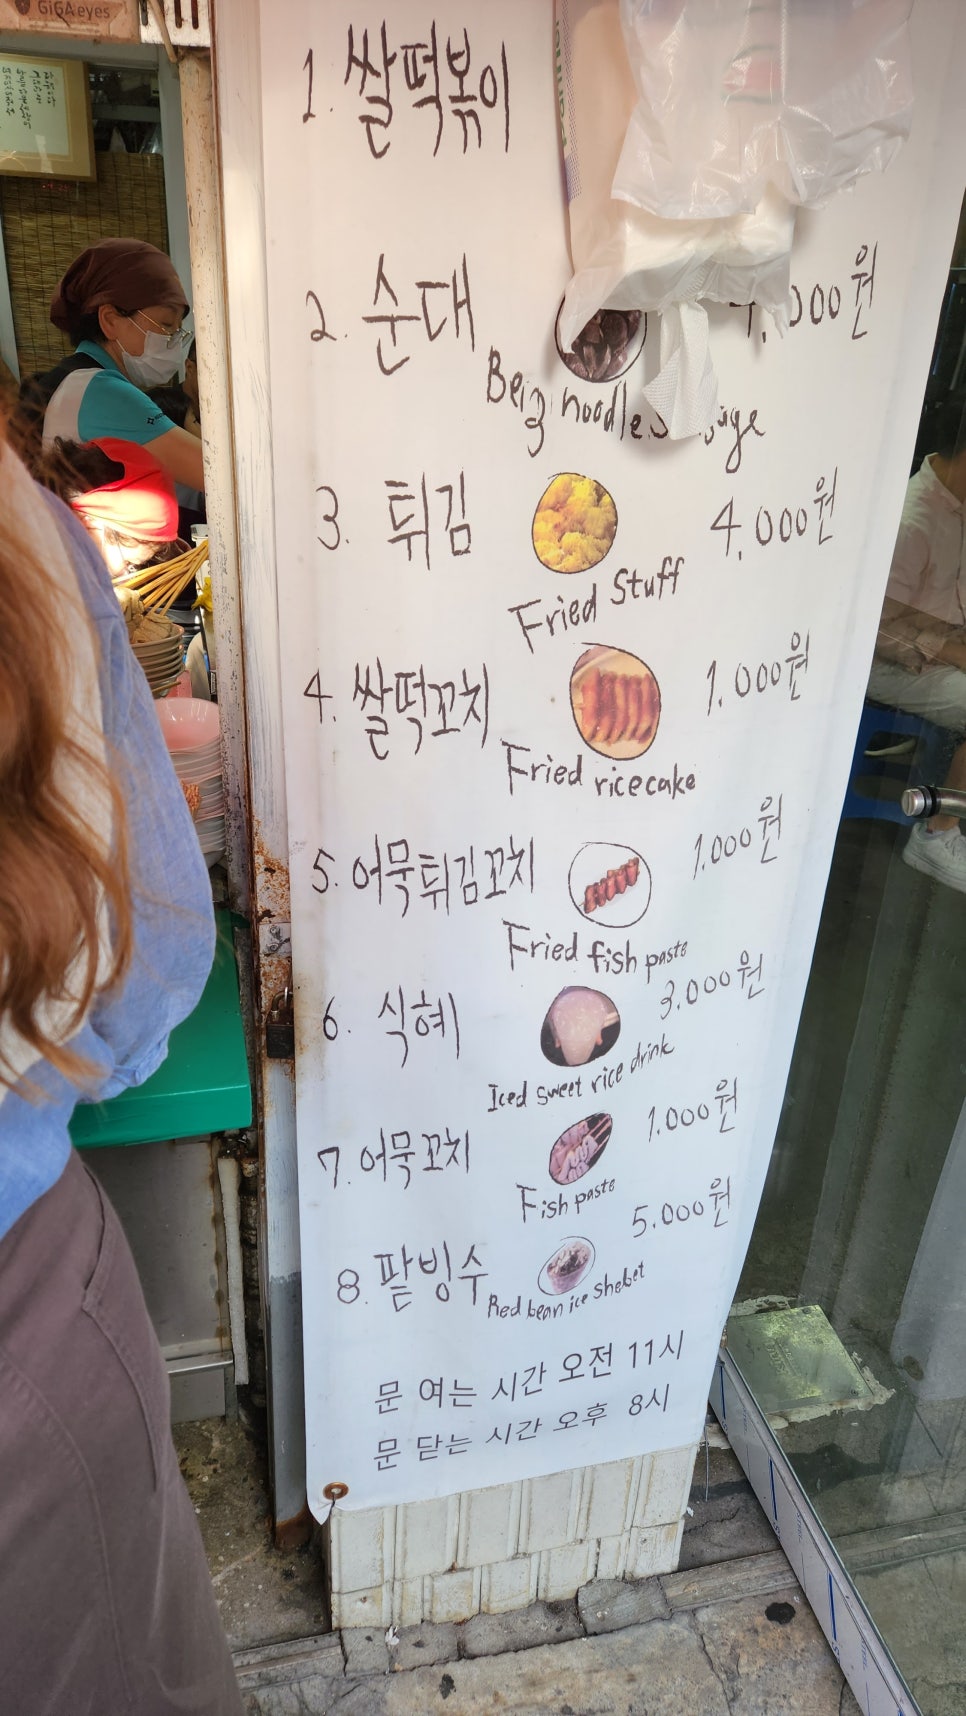 GiGAeyes
1. 쌀떡볶이
2. 순대 000원
noodle
3. 튀김 4.000원
Fried Stuff
4. 쌀떡꼬치 1.000원
Fried ricecake
5. 어묵튀김꼬치 1.000원
Fried fish paste
6. 식혜 3.000원
Iced sweet rice drink
7. 어묵꼬치 1.000원
Fish paste
8. 팥빙수 5.000원
Red bean ice Shebet
문 여는 시간 오전 11시
문 닫는 시간 오후 8시